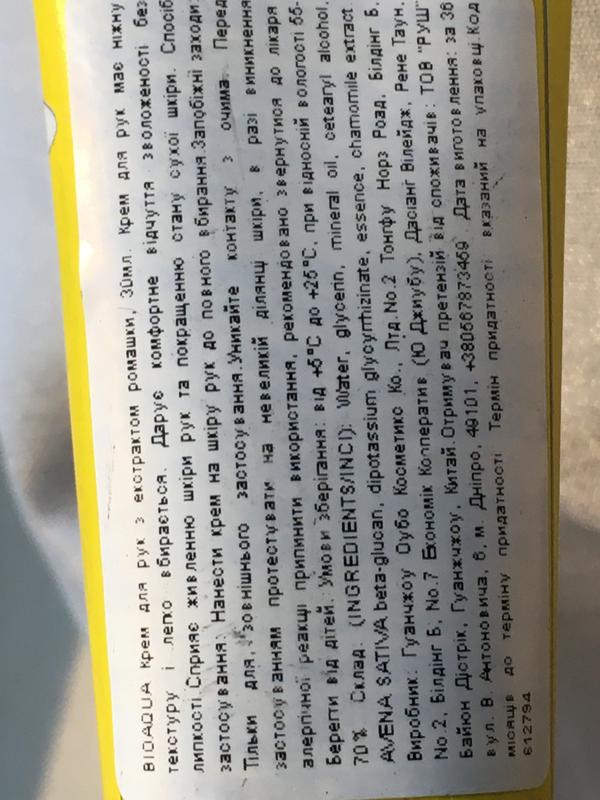 BIOAQUA Крем для рук з екстрактом ромашки, 30мл. Крем для рук має ніжну
текстуру і легко вбирається. Дарує комфортне відчуття зволоженості без
липкості.Сприяє живленню шкіри рук та покращенню стану сухої шкіри. Спосіб
застосування: Нанести крем на шкіру рук до повного вбирання.Запобіжні заходи:
Тільки для зовнішнього застосування.Уникайте контакту з очима. Перед
застосуванням протестувати на невеликій ділянці шкіри, в разі виникнення
алергічної реакції припинити використання, рекомендовано звернутися до лікаря
Берегти від дітей. Умови зберігання: від +5°C до +25°C, при відносній вологості 55-
70% Склад: (INGREDIENTS/INCI): Water, glycerin, mineral oil, cetearyl alcohol,
AVENA SATIVA beta-glucan, dipotassium glycyrrhizinate, essence, chamomile extract.
Виробник: Гуанчжоу Оубо Косметикс Ко., Лтд.No.2 Тонгфу Норз Роад, Білдінг Б,
No.2, Білдінг Б, No.7 Економік Коператив (Ю Джиубу), Дасіанг Вілейдж, Рене Таун,
Байюн Дістрік, Гуанжчжоу, Китай.Отримувач претензій від споживачів: ТОВ "РУШ"
вул. В. Антоновича, 6, м. Дніпро, 49101, +380567873459 Дата виготовлення: за 36
місяців до терміну придатності Термін придатності вказаний на упаковці.Код
612794